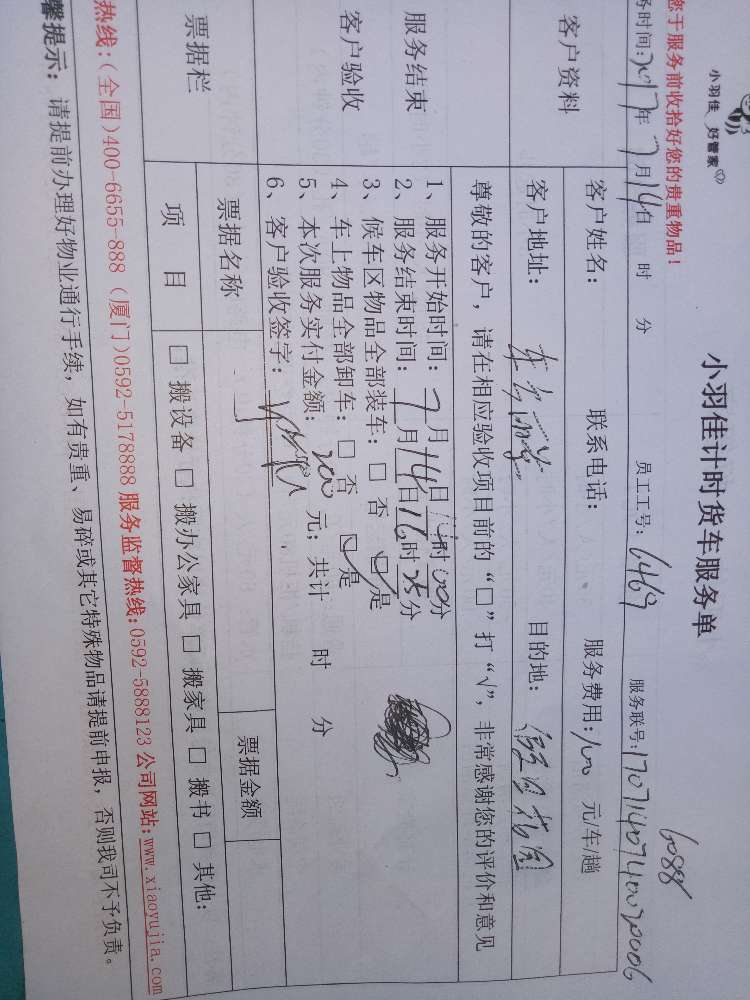 小羽佳 好管家
小羽佳计时货车服务单
6088
您于服务前收拾好您的贵重物品！
务时间：2017年7月14日 时 分 员工工号：6469 服务联号：170714074002006
客户资料
客户姓名： 联系电话： 服务费用：100 元/车/趟
客户地址： 目的地：
服务结束
客户验收
尊敬的客户，请在相应验收项目前的“□”打“√”，非常感谢您的评价和意见
1、服务开始时间：7月14日 时00分
2、服务结束时间：7月14日16时25分
3、候车区物品全部装车：□ 否 ☑ 是
4、车上物品全部卸车：□ 否 ☑ 是
5、本次服务实付金额：200 元；共计 时 分
6、客户验收签字：
票据栏
票据名称 票据金额
项 目 □ 搬设备 □ 搬办公家具 □ 搬家具 □ 搬书 □ 其他：
热线：(全国)400-6655-888 (厦门)0592-5178888 服务监督热线：0592-5888123 公司网站：www.xiaoyujia.com
馨提示：请提前办理好物业通行手续，如有贵重、易碎或其它特殊物品请提前申报，否则我司不予负责。